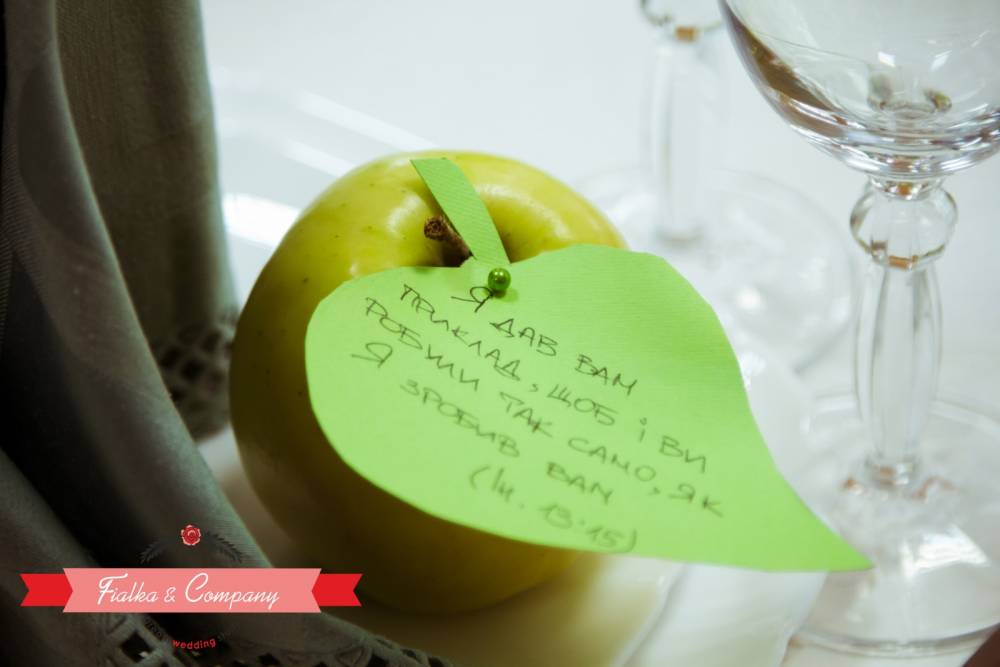 Я ДАВ ВАМ
ПРИКЛАД, ЩОБ І ВИ
РОБИЛИ ТАК САМО, ЯК
Я ЗРОБИВ ВАМ
(Ін. 13:15)
Fialka & Company
wedding